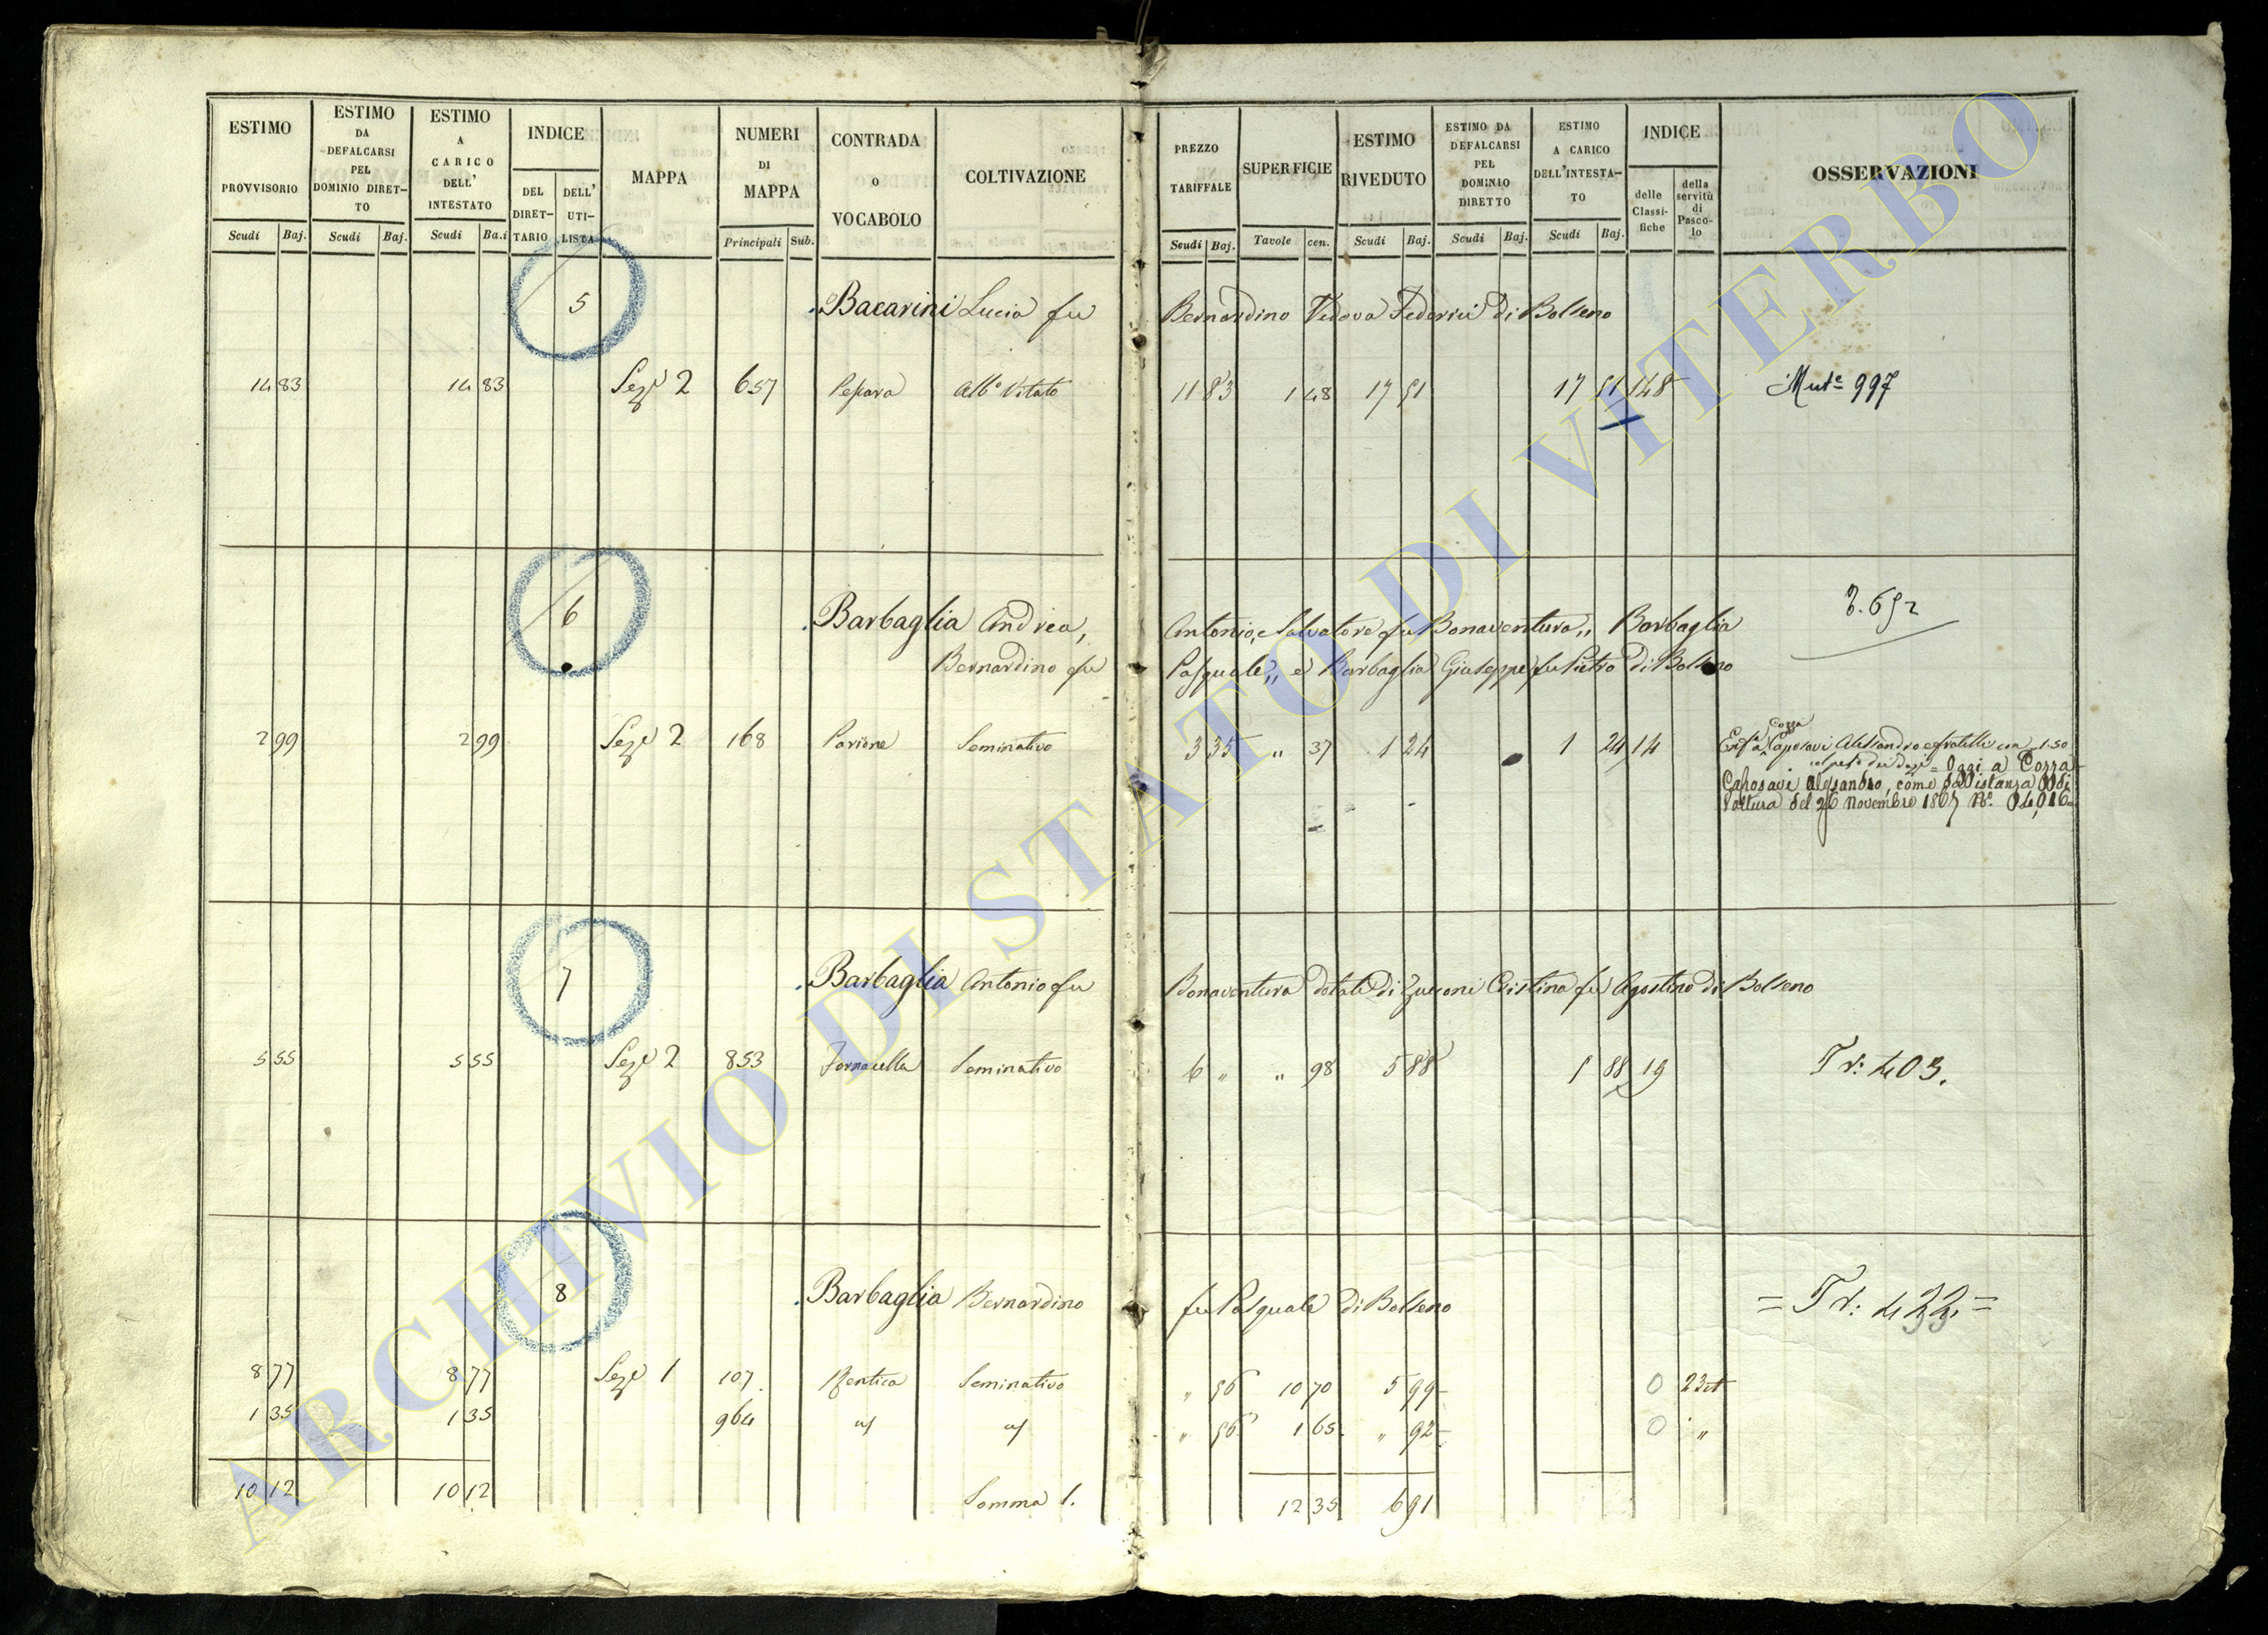 ESTIMO PROVVISORIO Scudi Baj.
ESTIMO DA DEFALCARSI PEL DOMINIO DIRET-TO Scudi Baj.
ESTIMO A CARICO DELL' INTESTATO Scudi Ba.i
INDICE DEL DIRET-TARIO DELL' UTI-LISTA
MAPPA
NUMERI DI MAPPA Principali Sub.
CONTRADA O VOCABOLO
COLTIVAZIONE
PREZZO TARIFFALE Scudi Baj.
SUPERFICIE Tavole cen.
ESTIMO RIVEDUTO Scudi Baj.
ESTIMO DA DEFALCARSI PEL DOMINIO DIRETTO Scudi Baj.
ESTIMO A CARICO DELL'INTESTA-TO Scudi Baj.
INDICE delle Classi-fiche della servitù di Pasco-lo
OSSERVAZIONI
5 Bacarini Lucia fu Bernardino Vedova Federici di Bolseno
14 83 14 83 Sez.e 2 657 Pepara Alb.o Vitato 11 83 1 48 17 51 17 51 148 Mut.e 997
6 Barbaglia Andrea, Antonio, e Salvatore fu Bonaventura,, Barbaglia 
Bernardino fu Pasquale,, e Barbaglia Giuseppe fu Pietro di Bolseno
2 99 2 99 Sez.e 2 168 Parione Seminativo 3 35 " 37 1 24 1 24 14
Cozza
Caposavi Alessandro e fratelli con 1.50
= Oggi a Cozza
Caposavi Alesandro, come da Distanza di
Voltura del 26 Novembre 1867
7 Barbaglia Antonio fu Bonaventura dotale di Zucconi Cristina fu Agostino di Bolseno
5 55 5 55 Sez.e 2 853 Fornacella Seminativo 6 " " 98 5 88 5 88 19 Tr: 403.
8 Barbaglia Bernardino fu Pasquale di Bolseno = Tr: 422. =
8 77 8 77 Sez.e 1 107 Rentica Seminativo " 56 10 70 5 99 0
1 35 1 35 964 " 56 1 65 " 92 0 "
10 12 10 12 Somma 1. 12 35 6 91
ARCHIVIO DI STATO DI VITERBO